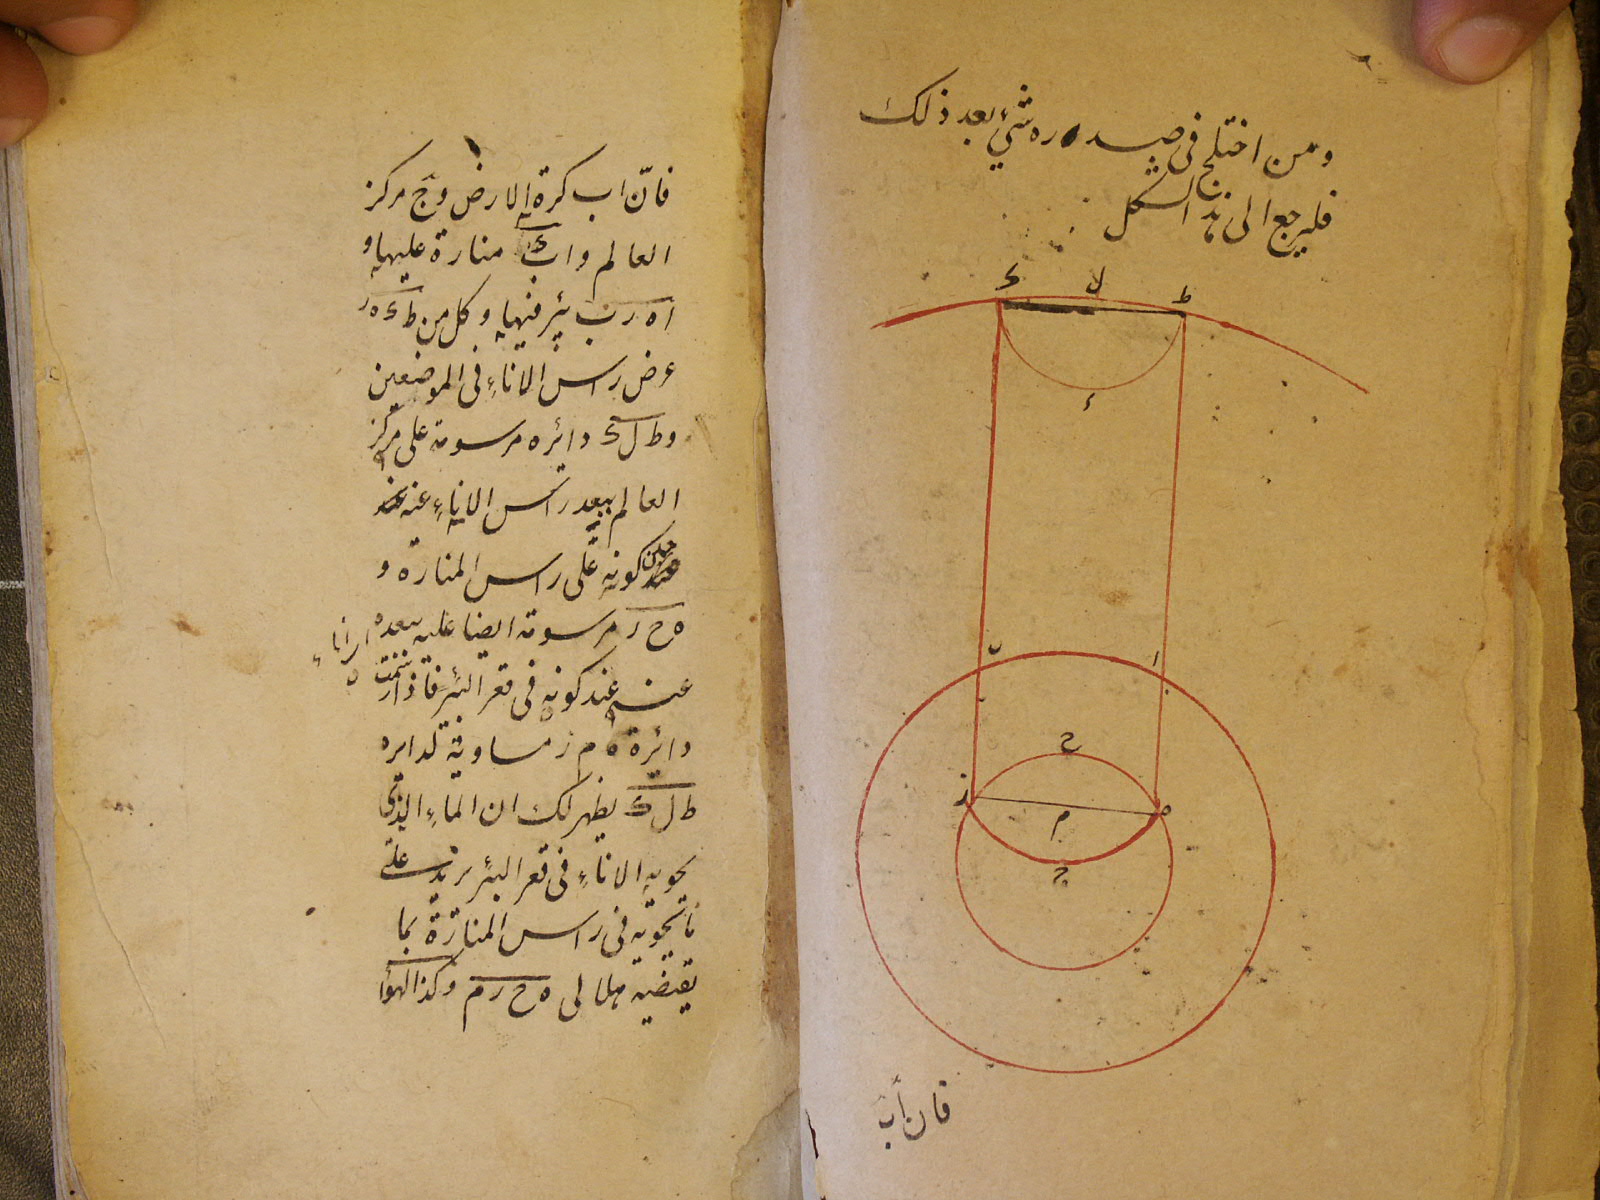 ومن اختلج فى صدره شئ بعد ذلك
فليرجع الى هذا الشكل
ى ل ط
ء
ب ا
ح
ز ه
م
ج
فان اب
فانّ اب كرة الارض وج مركز
العالم و اب ى ط منارة عليها و
ا ه ر ب بئر فيها و كل من ط ى ه ر
عرض راس الاناء فى الموضعين
و ط ل ى دائره مرسومة على مركز
العالم ببعد راس الاناء عنه
حين كونه على راس المنارة و
ه ح ر مرسومة ايضا عليه ببعد راس الاناء
عنه عند كونه فى قعر البئر فاذا رسمت
دائرة ه م ز مساوية لدايره
ط ل ى يظهر لك ان الماء الذى
يحويه الاناء فى قعر البئر يزيد على
ما يحويه فى راس المنارة بما
يقتضيه هلالى ه ح ر م وكذا الهواء